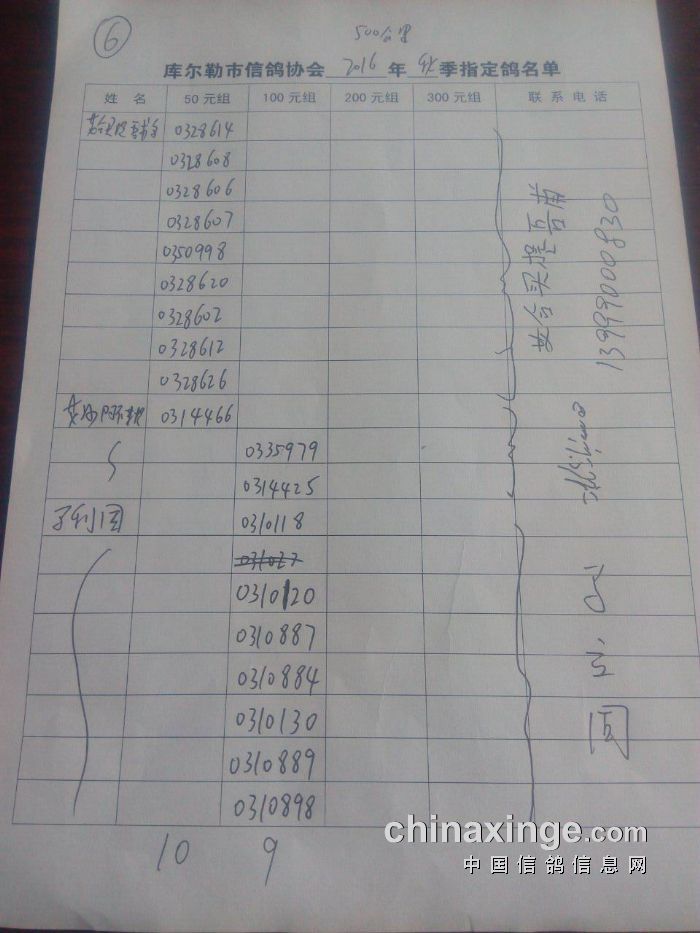 6
500公里
库尔勒市信鸽协会 2016 年 秋 季指定鸽名单
姓 名 50元组 100元组 200元组 300元组 联系电话
0328614
0328608
0328606
0328607
0350998
0328620
0328602
0328612
0328626
0314466
0335979
0314425
0310118
031027
0310120
0310887
0310884
0310130
0310889
0310898
13999000830
10 9
chinaxinge.com
中国信鸽信息网